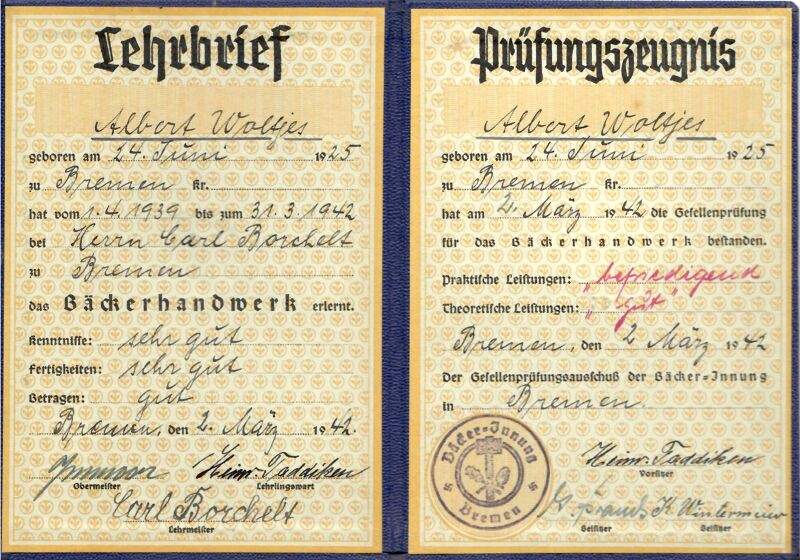 Lehrbrief
Albert Woltjes
geboren am 24. Juni 1925
zu Bremen Kr.
hat vom 1.4.1939 bis zum 31.3.1942
bei Herrn Carl Borchelt
zu Bremen
das Bäckerhandwerk erlernt.
Kenntnisse: sehr gut
Fertigkeiten: sehr gut
Betragen: gut
Bremen, den 2. März 1942.
Heinr. Taddiken
Obermeister Lehrlingswart
Carl Borchelt
Lehrmeister
Prüfungszeugnis
Albert Woltjes
geboren am 24. Juni 1925
zu Bremen Kr.
hat am 2. März 1942 die Gesellenprüfung
für das Bäckerhandwerk bestanden.
Praktische Leistungen: „befriedigend
Theoretische Leistungen: „gut"
Bremen, den 2 März 1942
Der Gesellenprüfungsausschuß der Bäcker-Innung
in Bremen.
Bäcker-Innung
Bremen
Heinr. Taddiken
Vorsitzer
K. Wintermeier
Beisitzer Beisitzer